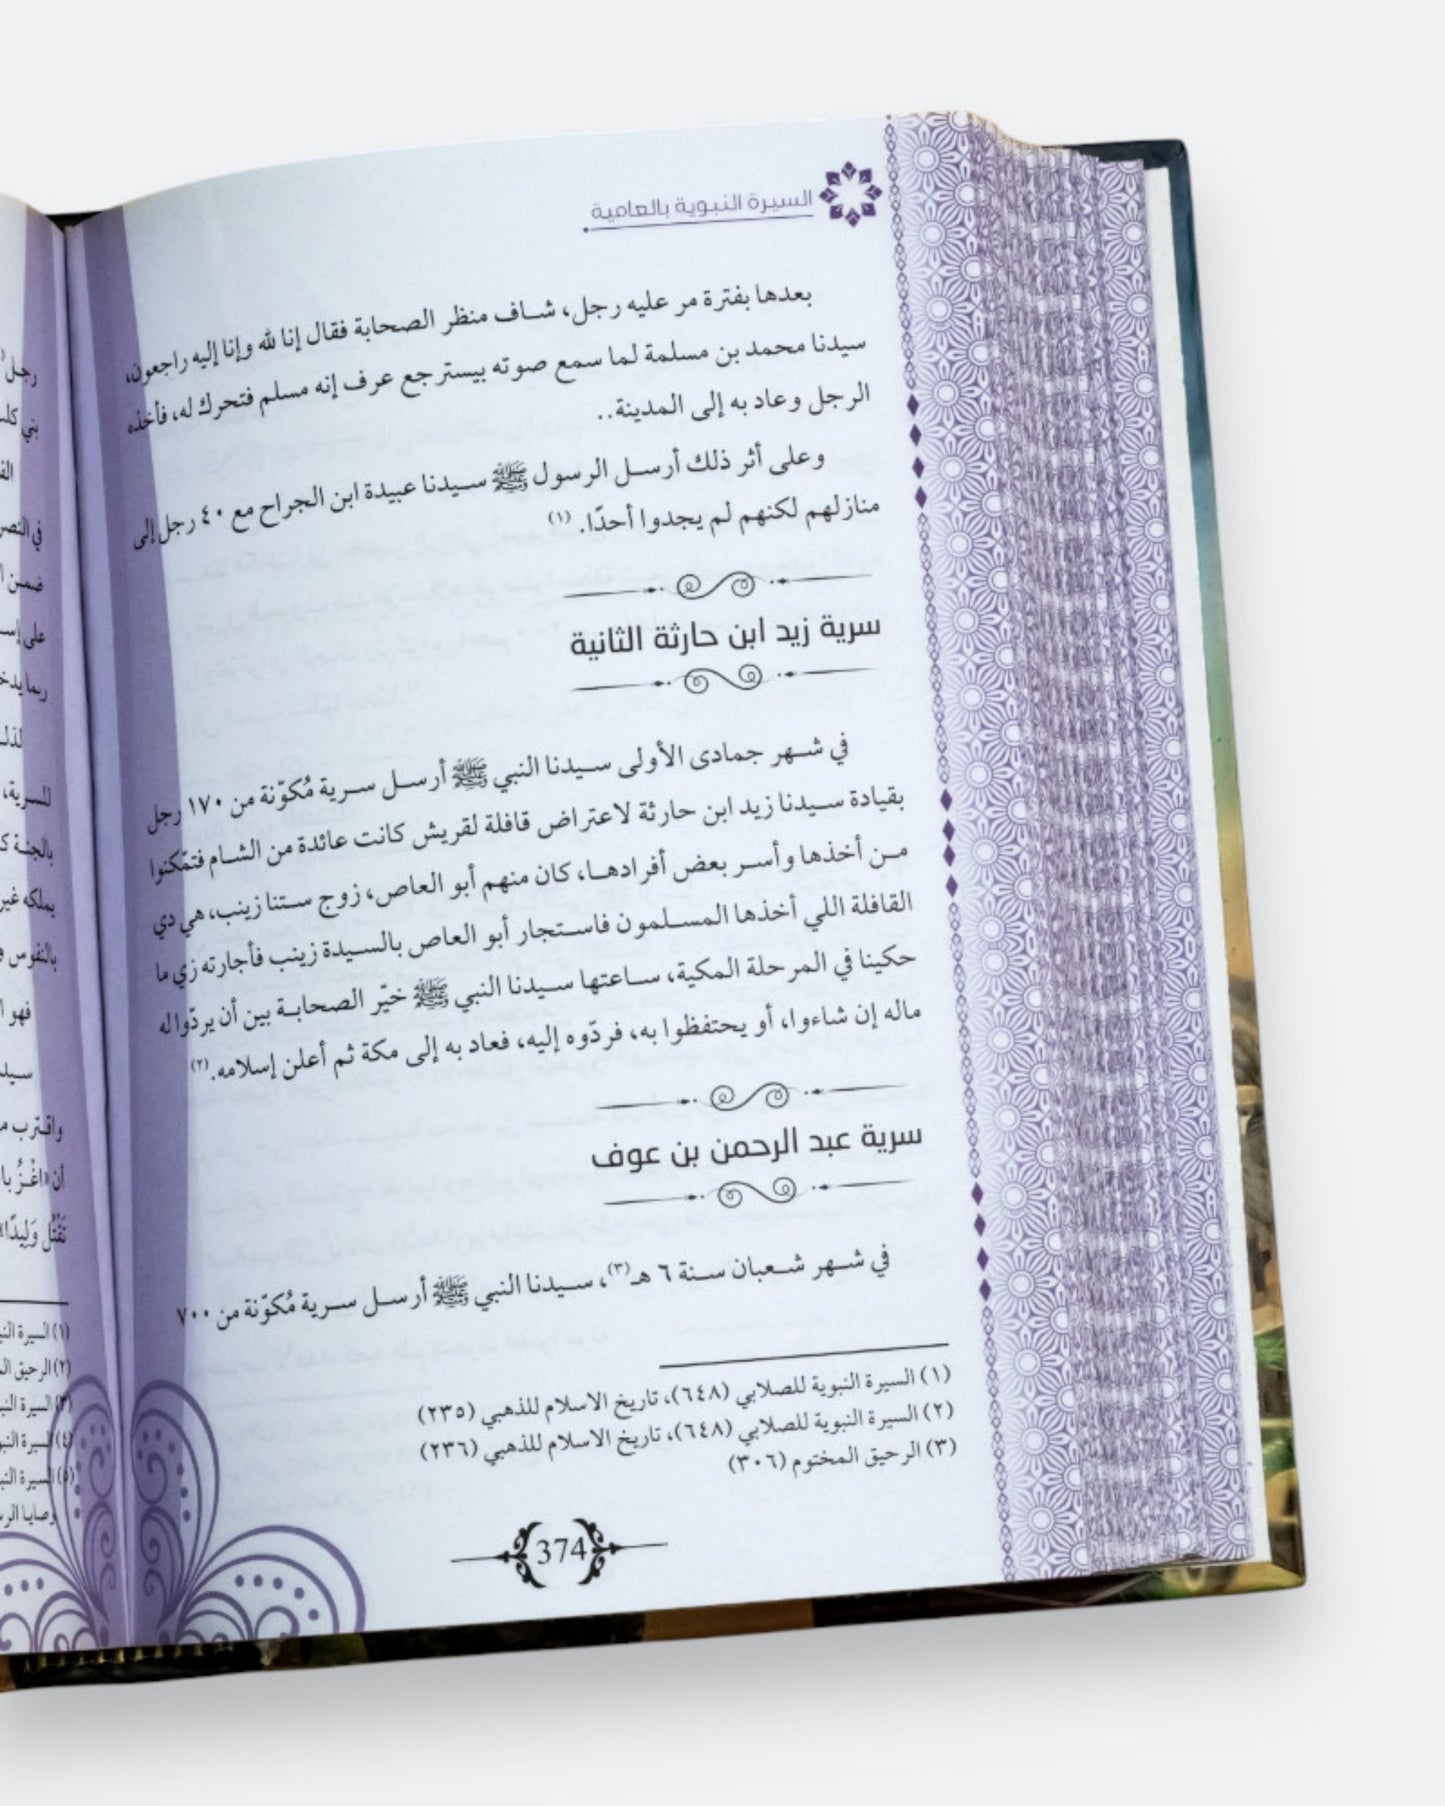 السيرة النبوية بالعامية
بعدها بفترة مر عليه رجل، شاف منظر الصحابة فقال إنا لله وإنا إليه راجعون،
سيدنا محمد بن مسلمة لما سمع صوته بيسترجع عرف إنه مسلم فتحرك له، فأخذه
الرجل وعاد به إلى المدينة..
وعلى أثر ذلك أرسل الرسول ﷺ سيدنا عبيدة ابن الجراح مع ٤٠ رجل إلى
منازلهم لكنهم لم يجدوا أحدًا. (١)
سرية زيد ابن حارثة الثانية
في شهر جمادى الأولى سيدنا النبي ﷺ أرسل سرية مُكوّنة من ١٧٠ رجل
بقيادة سيدنا زيد ابن حارثة لاعتراض قافلة لقريش كانت عائدة من الشام فتمّكنوا
من أخذها وأسر بعض أفرادها، كان منهم أبو العاص، زوج ستنا زينب، هي دي
القافلة اللي أخذها المسلمون فاستجار أبو العاص بالسيدة زينب فأجارته زي ما
حكينا في المرحلة المكية، ساعتها سيدنا النبي ﷺ خيّر الصحابة بين أن يردّوا له
ماله إن شاءوا، أو يحتفظوا به، فردّوه إليه، فعاد به إلى مكة ثم أعلن إسلامه. (٢)
سرية عبد الرحمن بن عوف
في شهر شعبان سنة ٦ هـ(٣)، سيدنا النبي ﷺ أرسل سرية مُكوّنة من ٧٠٠
(١) السيرة النبوية للصلابي (٦٤٨)، تاريخ الاسلام للذهبي (٢٣٥)
(٢) السيرة النبوية للصلابي (٦٤٨)، تاريخ الاسلام للذهبي (٢٣٦)
(٣) الرحيق المختوم (٣٠٦)
374
رجل
بني
في
ضمن
على
ربما
للسرية،
يملكه غير
بالنفوس
فهو
واقترب
أن «اغْزُ
تَقْتُل وَلِيدًا»
(١) السيرة
(٢) الرحيق
(٣) السيرة
(٤) السيرة
(٥) السيرة
وصايا